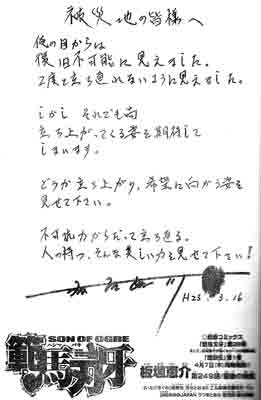 被災地の皆様へ
俺の目からは
復旧不可能に見えました。
2度と立ち直れないように見えました。
しかし それでも尚
立ち上がってくる姿を期待して
しまいます。
どうか立ち上がり、希望に向かう姿を
見せて下さい。
不可抗力からだって立ち直る。
人の持つ、そんな美しい力を見せて下さい!
H23 3.16
SON OF OGRE
範馬刃牙
板垣恵介